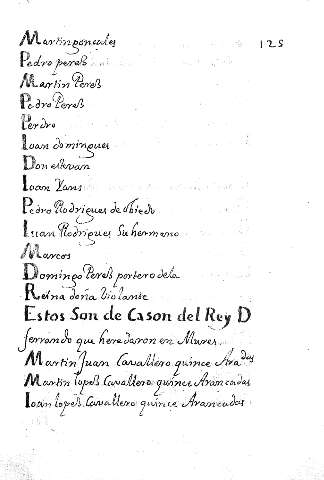 Martin gonçales
125
Pedro pereß
Martin Pereß
Pedro Pereß
Perdro
Ioan domingues
Don estevan
Ioan Yans
Pedro Rodrigues de obiedo
Luan Rodrigues Su hermano
Marcos
Domingo Pereß portero de la
Reina doña biolante
Estos Son de Cason del Rey D
ferrando que heredaron en Mures.
Martin Juan Cavallero quince Arãdas
Martin lopeß Cavallero quince Arancadas
Ioan lopeß Cavallero quince Arancadas